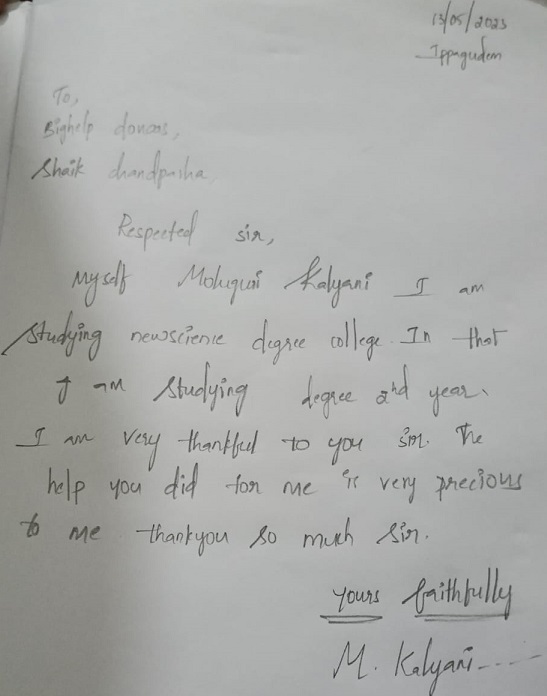 13/05/2023
Ippagudem
To,
Bighelp donors,
Shaik chandpasha
Respected sir,
Myself Moluguri Kalyani I am
studying newscience degree college. In that
I am studying degree 2nd year.
I am very thankful to you sir. The
help you did for me is very precious
to me thankyou so much sir.
yours faithfully
M. Kalyani----